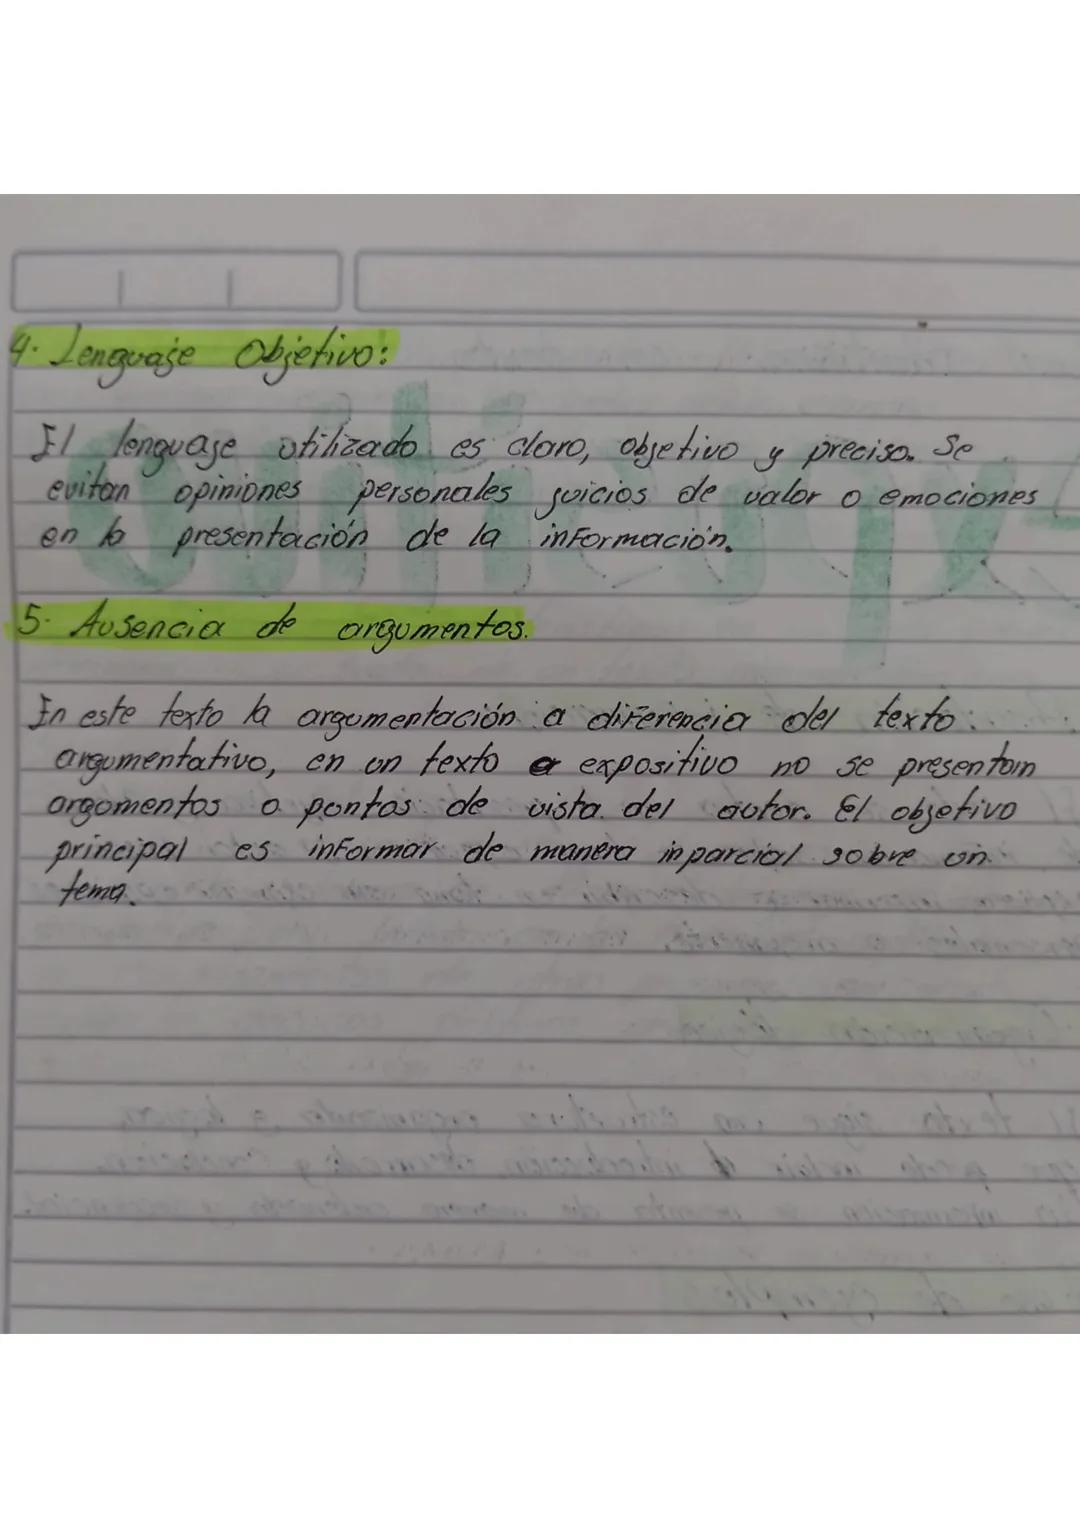 4. Lenguaje Objetivo:
El lenguaje utilizado es claro, objetivo y preciso. Se
evitan opiniones personales juicios de valor o emociones
en la presentación de la información.
5. Ausencia de argumentos.
En este texto la argumentación a diferencia del texto
argumentativo, en un texto expositivo no se presentan
argumentos o puntos de vista del autor. El objetivo
principal es informar de manera inparcial sobre un
tema.